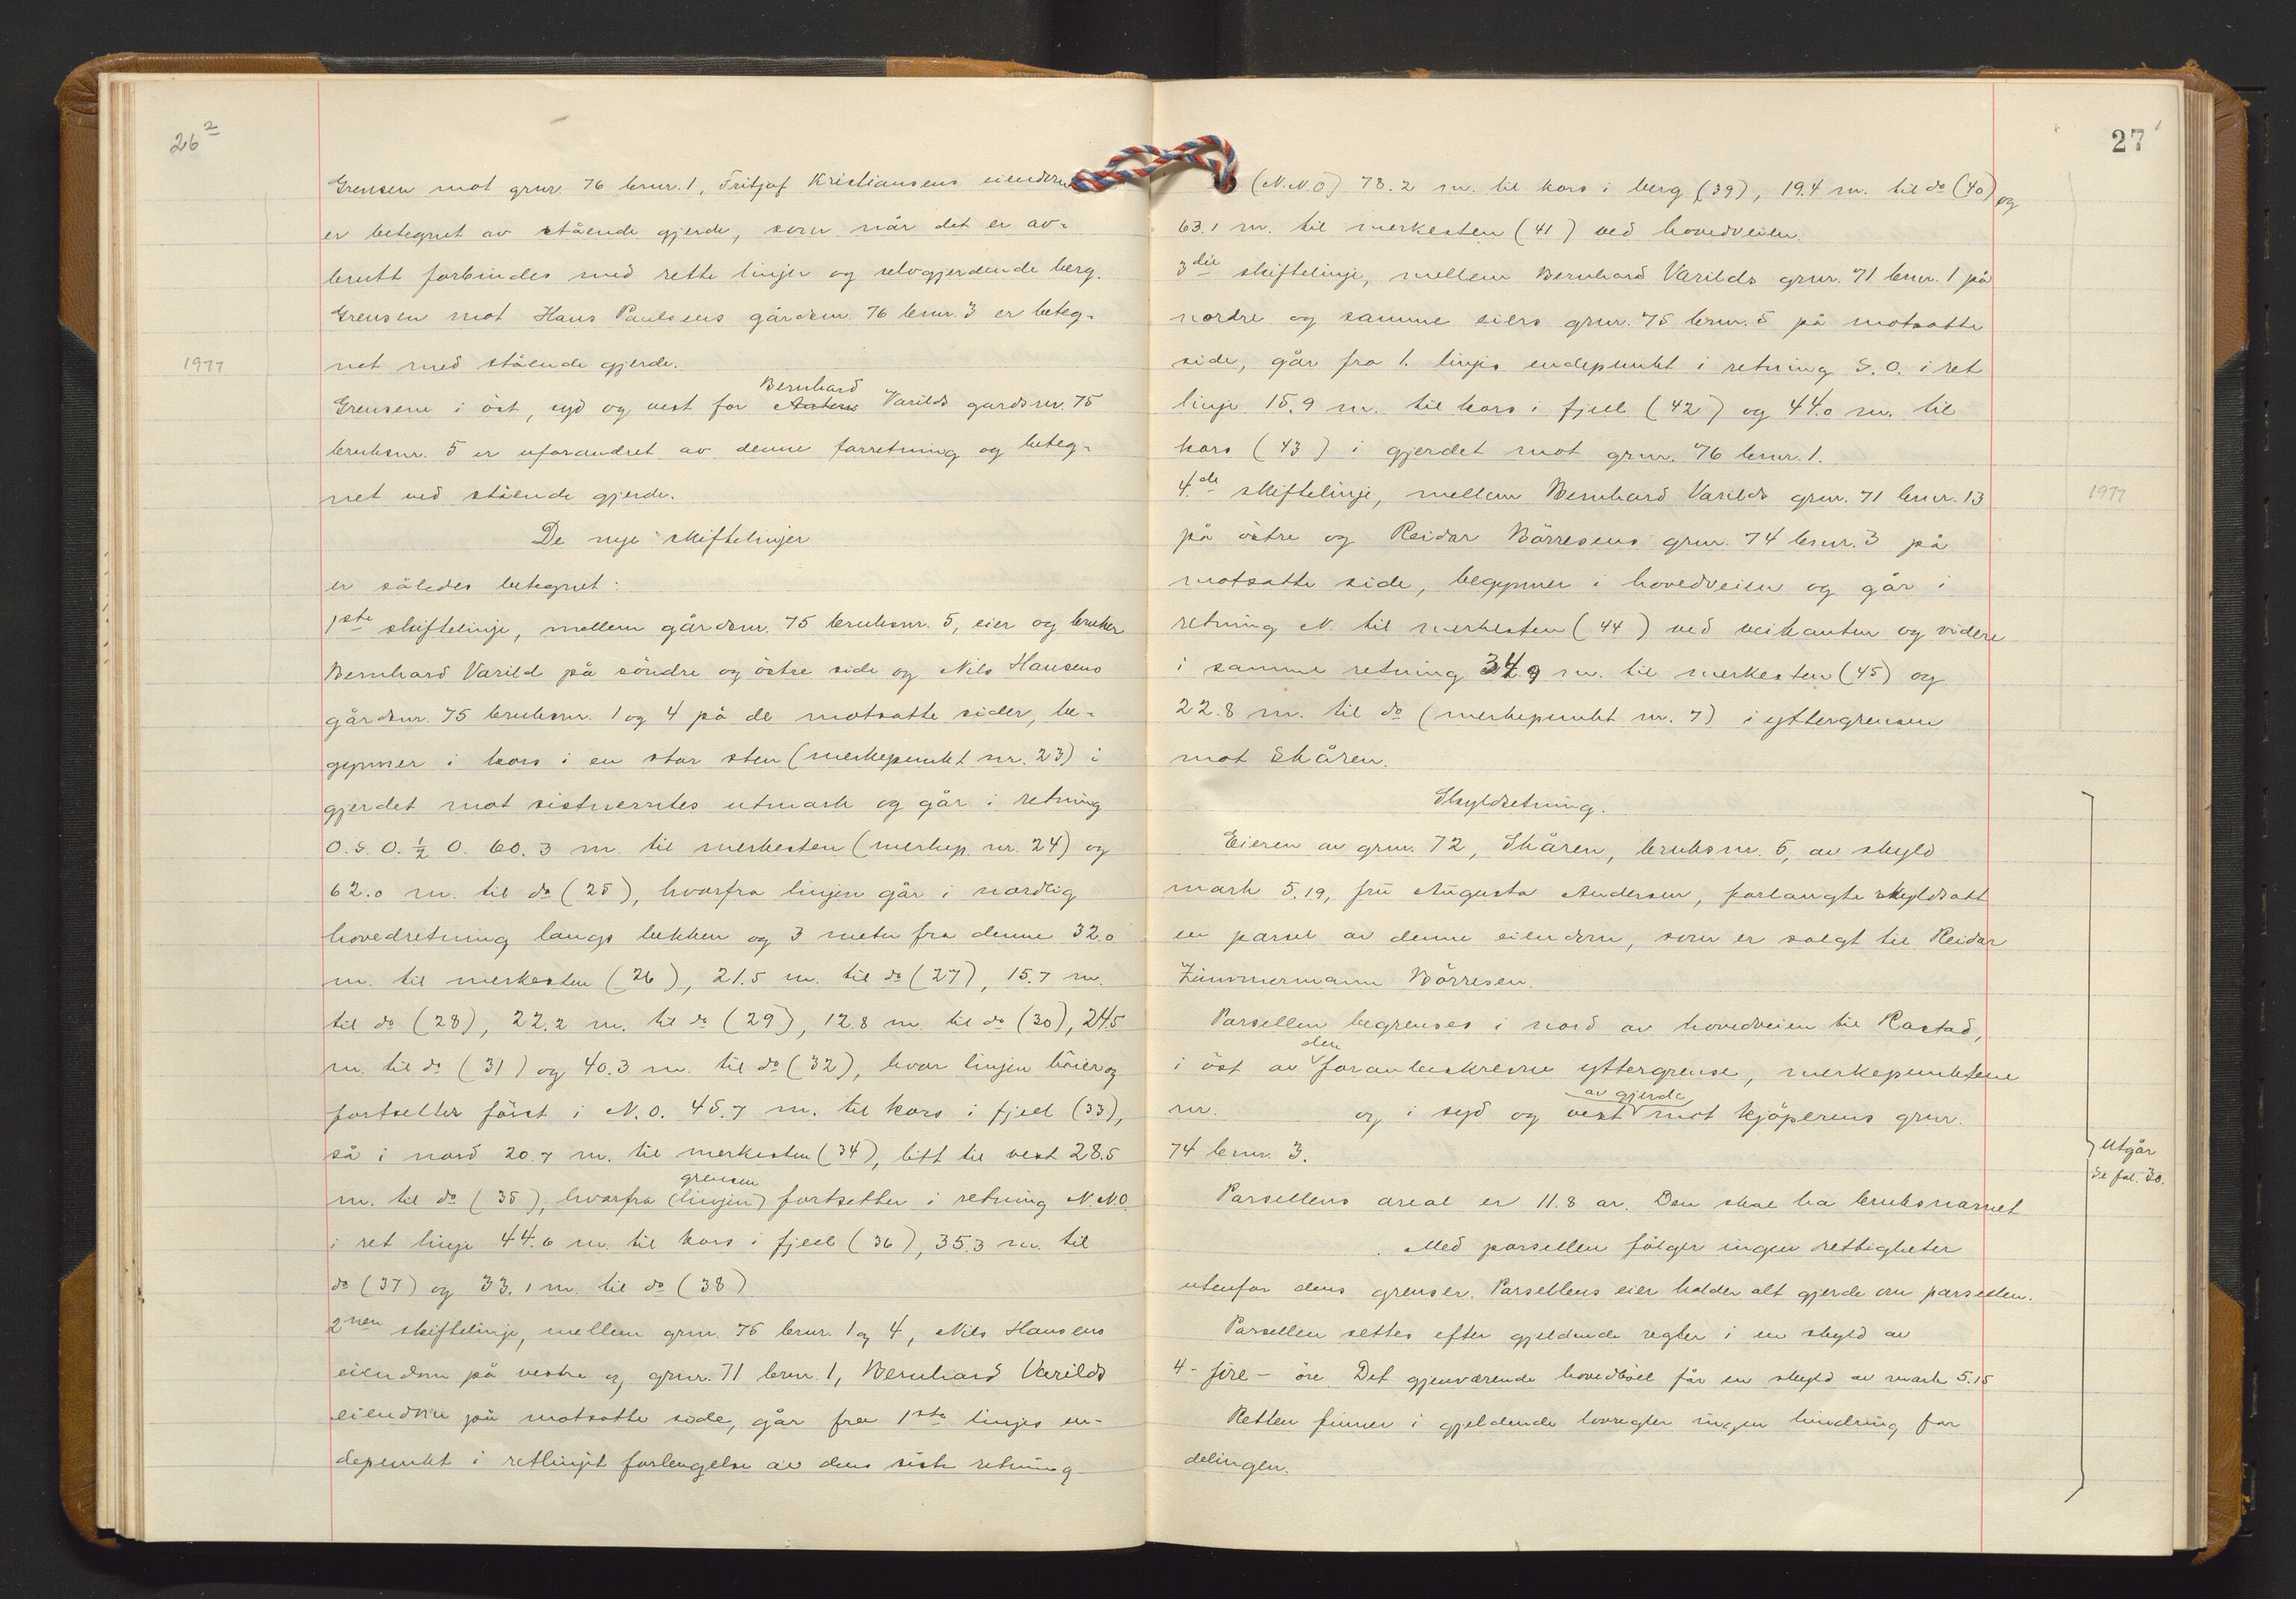 26²
Grensen mot grnr. 76 brnr. 1, Fritjof Kristiansens eiendom
er betegnet av stående gjerde, som når det er av-
brutt forbindes med rette linjer og selvgjerdende berg.
Grensen mot Hans Paulsens gårdsnr. 76 brnr. 3 er beteg-
1977
net med stående gjerde.
Bernhard
Grensene i öst, syd og vest for Antons Varilds gardsnr. 75
bruksnr. 5 er uforandret av denne forretning og beteg-
net ved stående gjerde.
De nye skiftelinjer
er således betegnet:
1ste skiftelinje, mellem gårdsnr. 75 bruksnr. 5, eier og bruker
Bernhard Varild på söndre og östre side og Nils Hansens
gårdsnr. 75 bruksnr. 1 og 4 på de motsatte sider, be-
gynner i kors i en stor sten (merkepunkt nr. 23) i
gjerdet mot sistnevntes utmark og går i retning
O.S.O. ½ O. 60.3 m. til merkesten (merkep. nr. 24) og
62.0 m. til do (25), hvorfra linjen går i nordlig
hovedretning langs bekken og 3 meter fra denne 32.0
m. til merkesten (26), 21.5 m. til do (27), 15.7 m.
til do (28), 22.2 m. til do (29), 12.8 m. til do (30), 24.5
m. til do (31) og 40.3 m. til do (32), hvor linjen böier og
fortsetter först i N.O. 45.7 m. til kors i fjell (33),
så i nord 20.7 m. til merkesten (34), litt til vest 28.5
grensen
m. til do (35), hvorfra (linjen) fortsetter i retning N.N.O.
i ret linje 44.6 m. til kors i fjell (36), 35.3 m. til
do (37) og 33.1 m. til do (38).
2nen skiftelinje, mellem grnr. 75 brnr. 1 og 4, Nils Hansens
eiendom på vestre og grnr. 71 brnr. 1, Bernhard Varilds
eiendom på motsatte side, går fra 1ste linjes en-
depunkt i retlinjet forlengelse av dens siste retning
27
(N.N.O) 78.2 m. til kors i berg (39), 19.4 m. til do (40) og
63.1 m. til merkesten (41) ved hovedveien.
3die skiftelinje, mellem Bernhard Varilds grnr. 71 brnr. 1 på
nordre og samme eiers grnr. 75 brnr. 5 på motsatte
side, går fra 1. linjes endepunkt i retning S.O. i ret
linje 15.9 m. til kors i fjell (42) og 44.0 m. til
kors (43) i gjerdet mot grnr. 76 brnr. 1.
4.de skiftelinje, mellem Bernhard Varilds grnr. 71 brnr. 13
1977
på östre og Reidar Börresens grnr. 74 brnr. 3 på
motsatte side, begynner i hovedveien og går i
retning N. til merkesten (44) ved veikanten og videre
i samme retning 34.9 m. til merkesten (45) og
22.8 m. til do (merkepunkt nr. 7) i yttergrensen
mot Skåren.
Skyldsetning.
Eieren av grnr. 72, Skåren, bruksnr. 5, av skyld
mark 5.19, fru Augusta Andersen, forlangte skyldsatt
en parsel av denne eiendom, som er solgt til Reidar
Zimmermann Börresen.
Parsellen begrenses i nord av hovedveien til Rastad,
den
i öst av foranbeskrevne yttergrense, merkepunktene
av gjerde
nr. og i syd og vest mot kjöperens grnr.
74 brnr. 3.
Utgår
Se fol. 30.
Parsellens areal er 11.8 ar. Den skal ha bruksnavnet
. Med parsellen fölger ingen rettigheter
utenfor dens grenser. Parsellens eier holder alt gjerde om parsellen.
Parsellen settes efter gjeldende regler i en skyld av
4 - fire - öre. Det gjenværende hovedböl får en skyld av mark 5.15
Retten finner i gjeldende lovregler ingen hindring for
delingen.